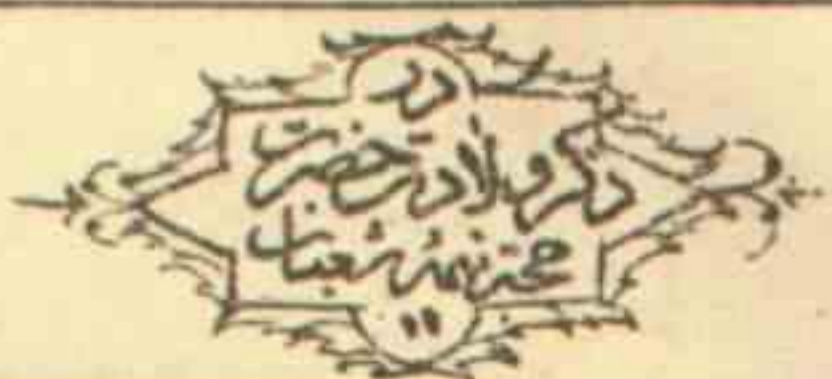 در
ذکر ولادت حضرت
حجة نیمه شعبان
۱۱